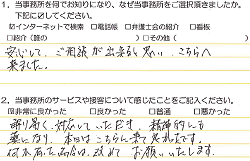 1、当事務所を何でお知りになり、なぜ当事務所をご選択頂きましたか。
下記に記してください。
☑インターネットで検索 □電話帳 □弁護士会の紹介 □看板
□紹介（誰の　　　　　）□その他（　　　　　）
安心して、ご相談が出来ると思い、こちらへ
来ました。
2、当事務所のサービスや接客について感じたことをご記入ください。
□非常に良かった □良かった □普通 □悪かった
暖かく対応していただき、精神的にも
楽になり、本当にこちらに来て良かったです。
何かあった時は、改めてお願いいたします。